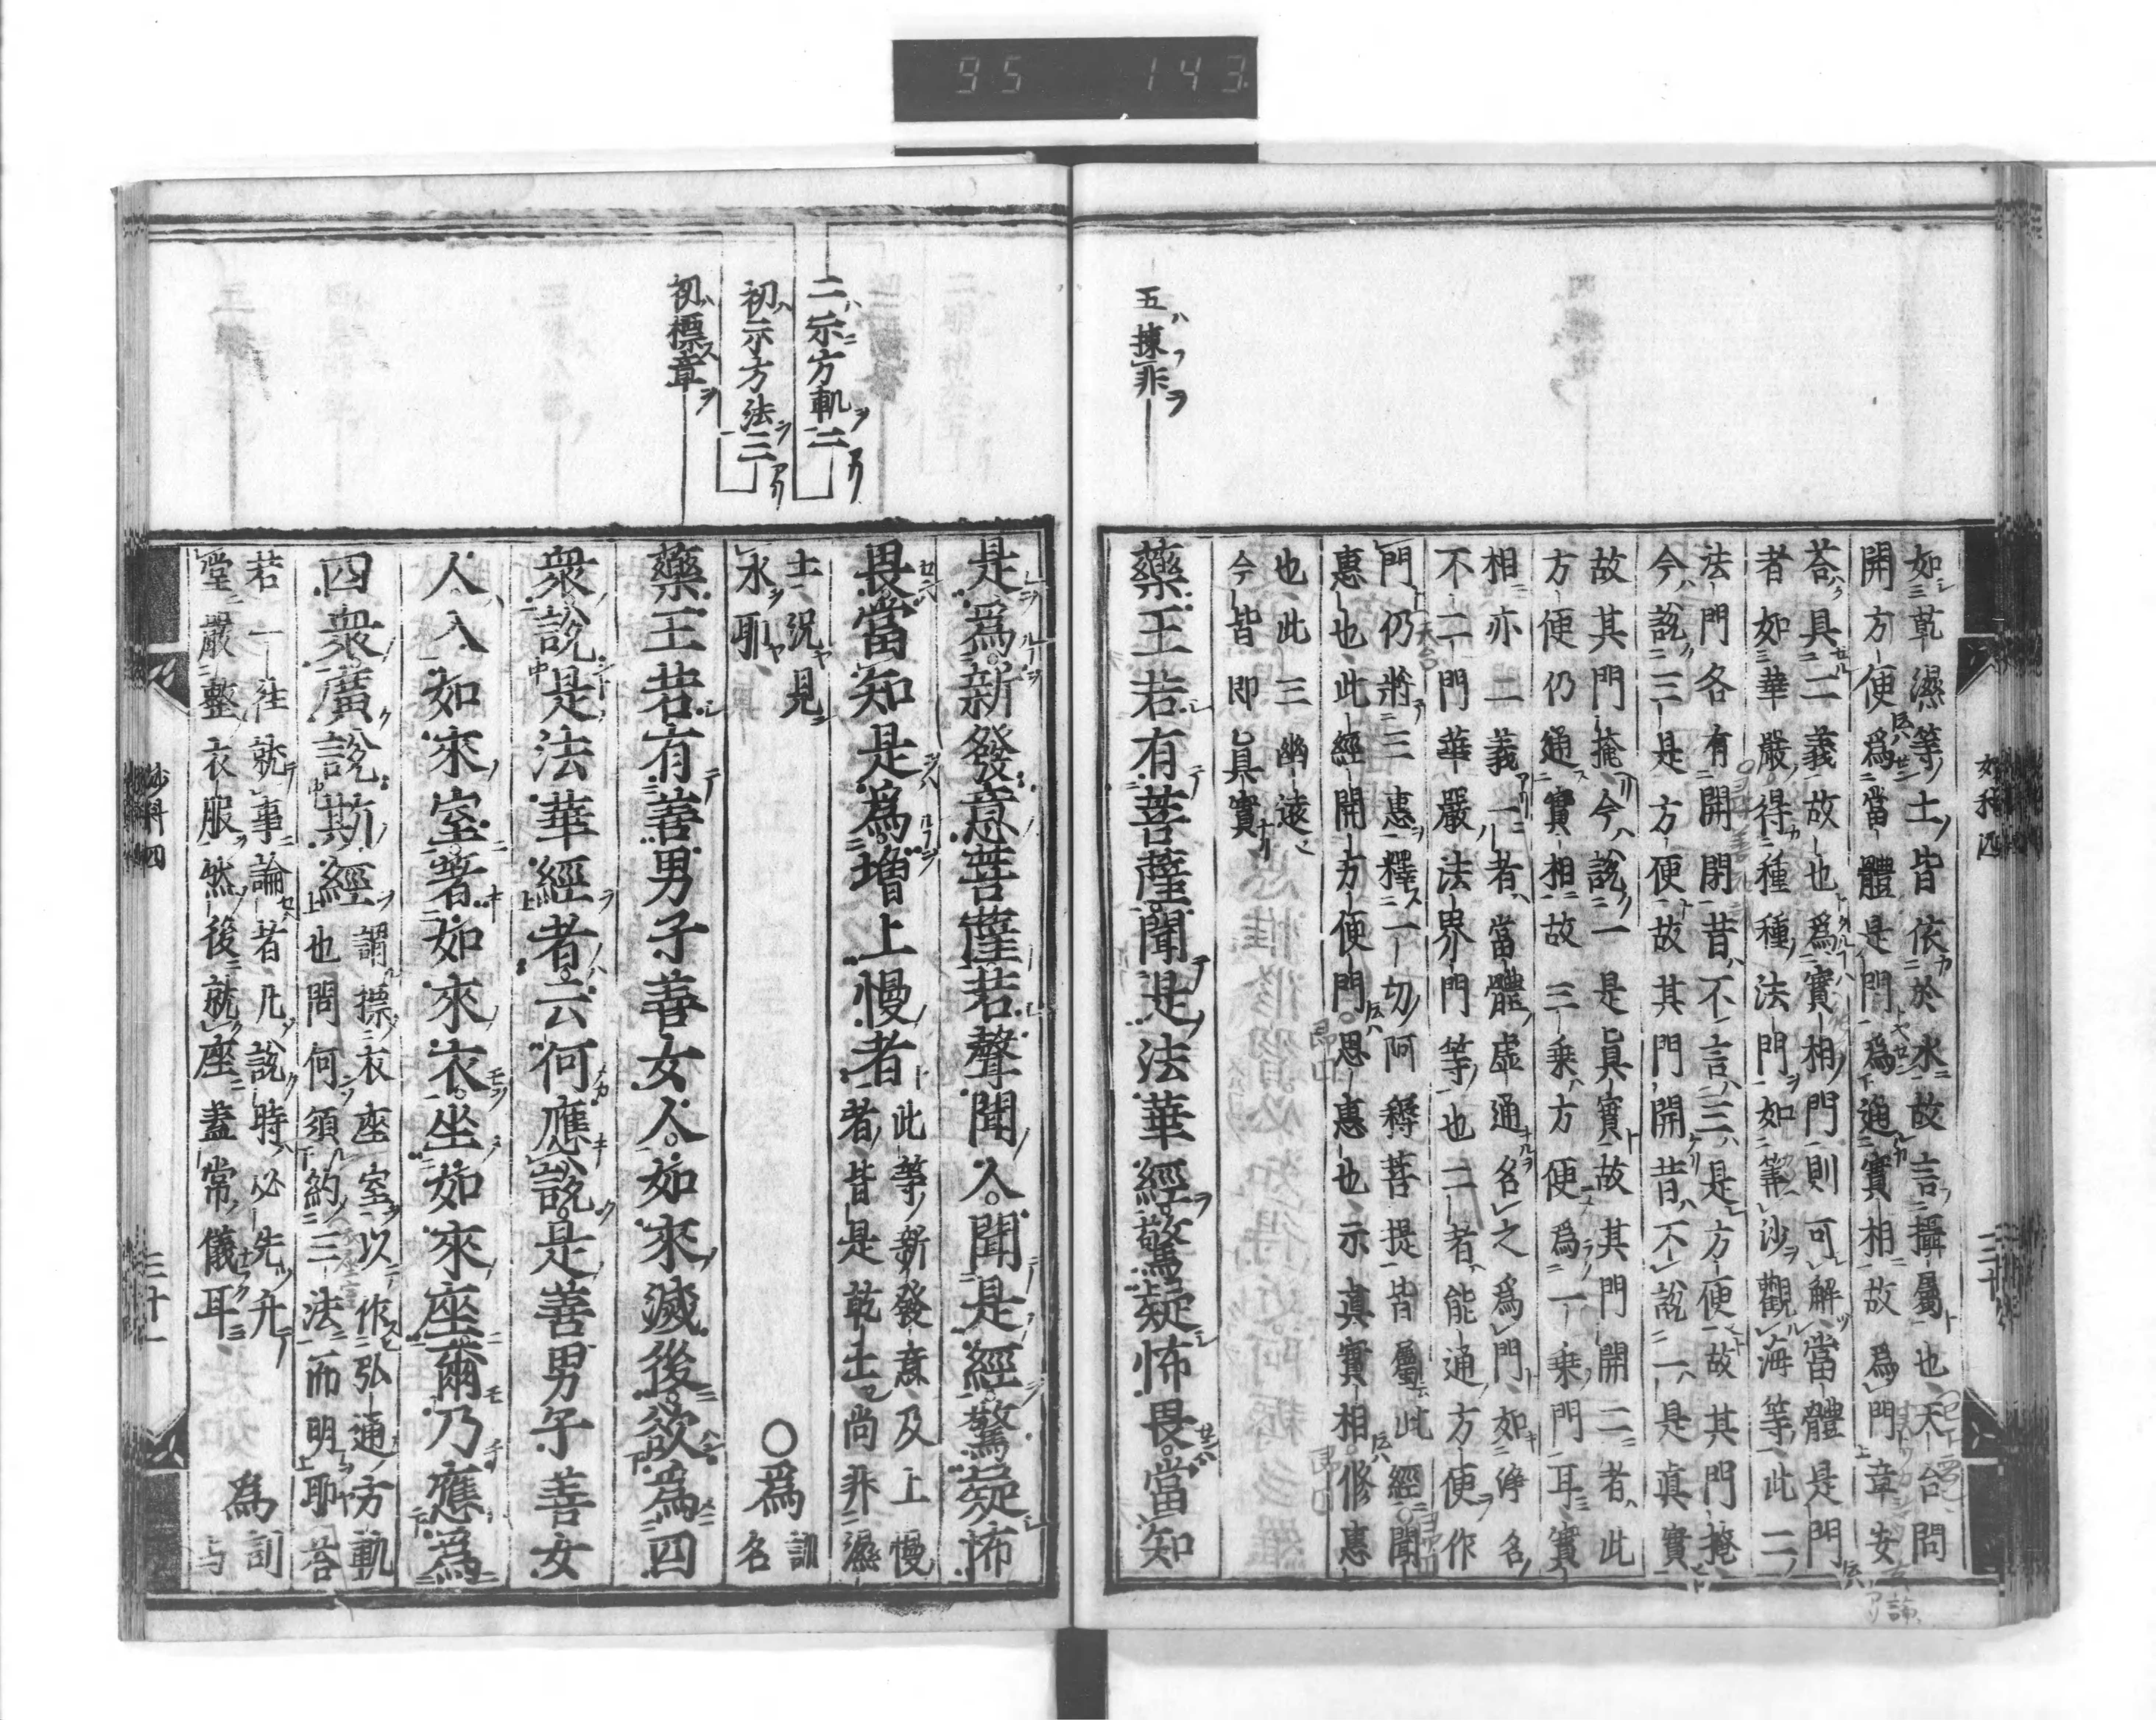 95 143
如乾濕等土皆依於水故言攝屬也天台問
開方便爲當體是門爲通實相故爲門章安
荅具二義故也爲實相門則可解當體是門
者如華嚴得種種法門如筭沙觀海等此二
法門各有開閉昔不言三是方便故其門掩
今說三是方便故其門開昔不說一是真實
故其門掩今說一是眞實故其門開二者此
方便仍通實相故三乘方便爲一乘門耳實
相亦二義一者當體虛通名之爲門如淨名
不二門華嚴法界門等也二者能通方便作
門仍將三惠釋一切阿耨菩提皆屬此經聞
惠也此經開方便門思惠也示真實相修惠
也此三幽遠
今皆即眞實
五揀非
藥王若有菩薩聞是法華經驚疑怖畏當知
如科四
三十
二示方軌二
初示方法三
初標章
是爲新發意菩薩若聲聞人聞是經驚疑怖
畏當知是爲增上慢者
此等新發意及上慢
者皆是乾土尚非濕
土況見
水耶
○爲
訓
名
藥王若有善男子善女人如來滅後欲爲四
衆說是法華經者云何應說是善男子善女
人入如來室著如來衣坐如來座爾乃應爲
四衆廣說斯經
謂標衣座室以作弘通方軌
也問何須約三法而明耶荅
若一往就事論者凡說時必先升
堂嚴整衣服然後就座蓋常儀耳
爲
訓
与
科四
三十一